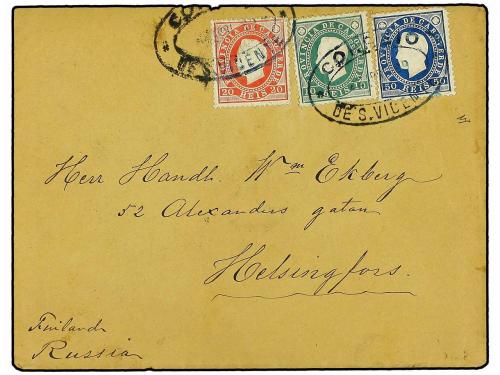 PROVINCIA DE CABO VERDE
20 REIS 20
10 REIS 10
PROVINCIA DE CABO VERDE
50 REIS 50
DE S. VICEN
DE S. VICEN
Herr Handl. Wm Ekberg
52 Alexanders gatan
Helsingfors.
Finland
Russia